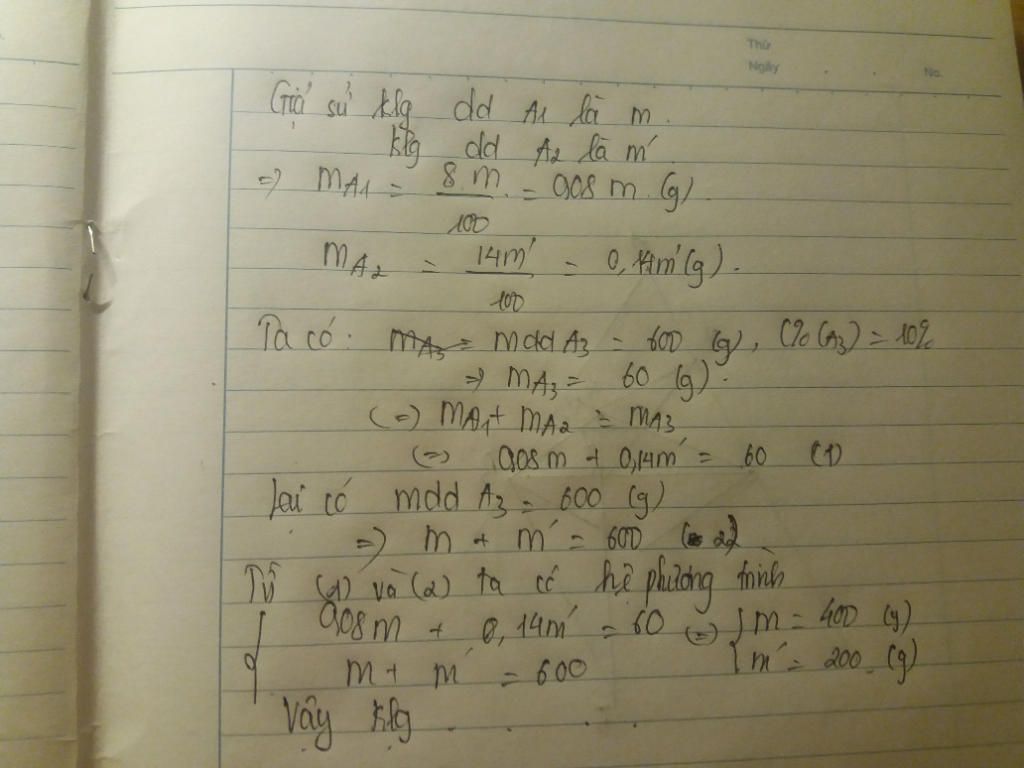 Thứ
Ngày . . No.
Giả sử klg dd A1 là m.
klg dd A2 là m'
=> mA1 = 8.m/100 = 0,08 m (g).
mA2 = 14m'/100 = 0,14m'(g).
Ta có: mA3 = mdd A3 = 600 (g), C% (A3) = 10%
=> mA3 = 60 (g).
(=) mA1 + mA2 = mA3
(=) 0,08m + 0,14m' = 60 (1)
Lại có mdd A3 = 600 (g)
=> m + m' = 600 (2)
Từ (1) và (2) ta có hệ phương trình
{ 0,08m + 0,14m' = 60 (=) { m = 400 (g)
m + m' = 600 m' = 200 (g)
Vậy klg . . . .